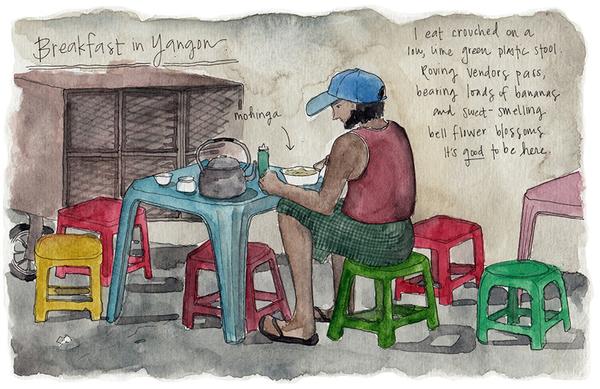 Breakfast in Yangon
I eat crouched on a
low, lime green plastic stool.
Roving vendors pass,
bearing loads of bananas
and sweet-smelling
bell flower blossoms.
It's good to be here.
mohinga